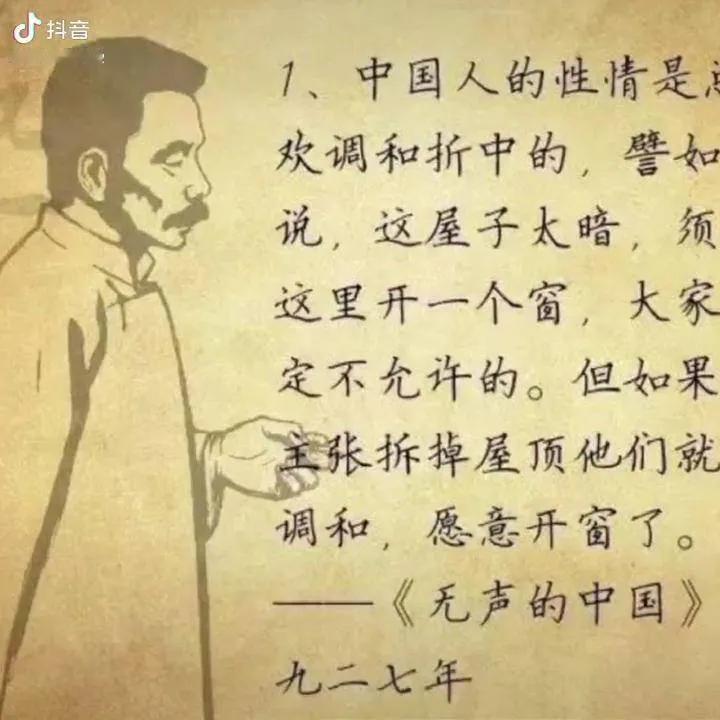 抖音
1、中国人的性情是
欢调和折中的，譬如
说，这屋子太暗，须
这里开一个窗，大家
定不允许的。但如果
主张拆掉屋顶他们就
调和，愿意开窗了。
——《无声的中国》
九二七年